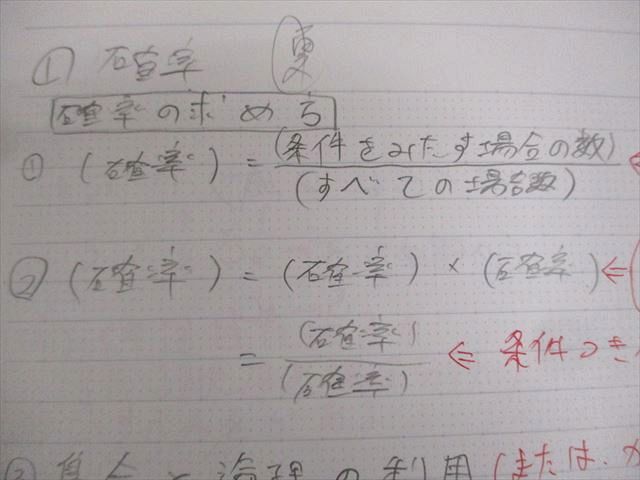 ① 確率 夏
確率の求め方
① (確率) = (条件をみたす場合の数)
(すべての場合数)
② (確率) = (確率) × (確率) ⇐
= (確率)
(確率) ⇐ 条件つき
集合と論理の利用 (または、か